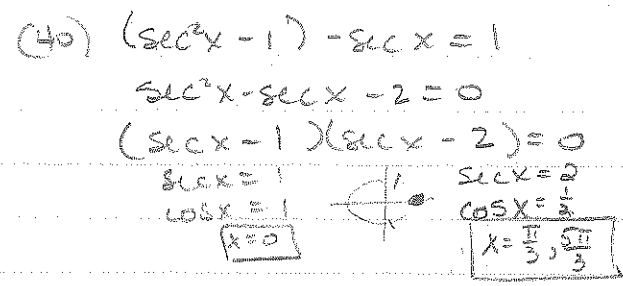 (40) (sec²x - 1) - sec x = 1
sec²x - sec x - 2 = 0
(sec x - 1)(sec x - 2) = 0
sec x = 1 sec x = 2
cos x = 1 cos x = 1/2
x = 0 x = π/3, 5π/3